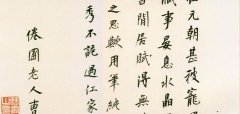 在元朝甚被寵
事晏息水晶
書閒居賦得無
之思歟用筆純
秀不託過江家
倦圃老人曹